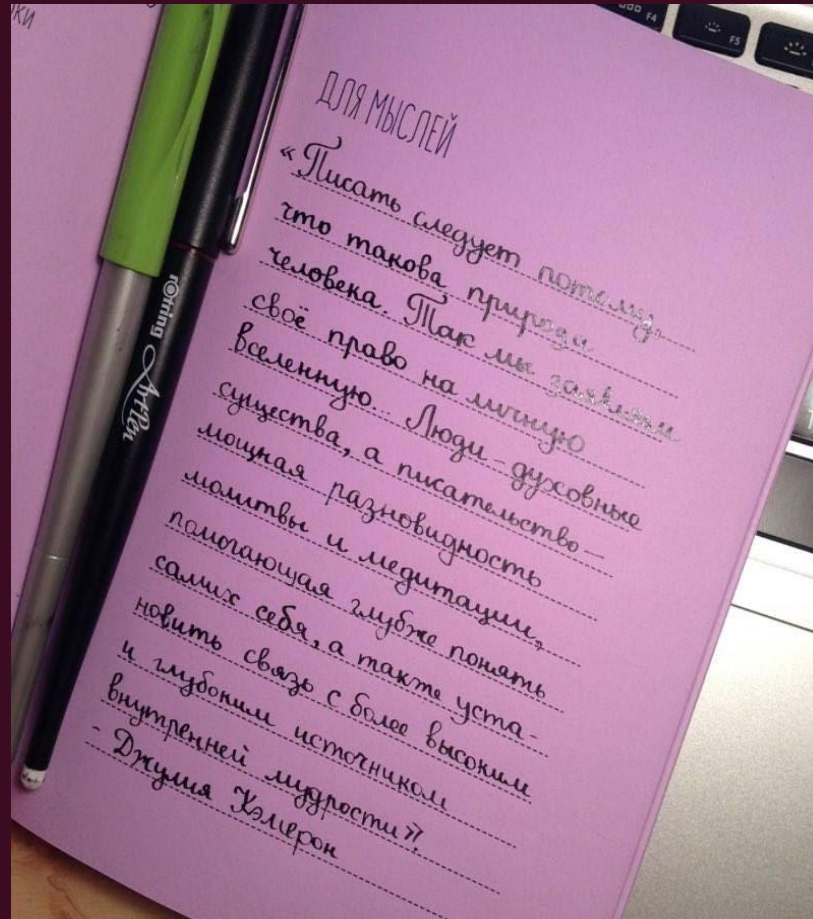 ки
F4
F5
ДЛЯ МЫСЛЕЙ
«Писать следует потому,
что такова природа
человека. Так мы заявляем
своё право на личную
вселенную... Люди – духовные
существа, а писательство –
мощная разновидность
молитвы и медитации,
помогающая глубже понять
самих себя, а также уста-
новить связь с более высоким
и глубоким источником
внутренней мудрости».
- Джулия Кэмерон
rOtring ArtPen